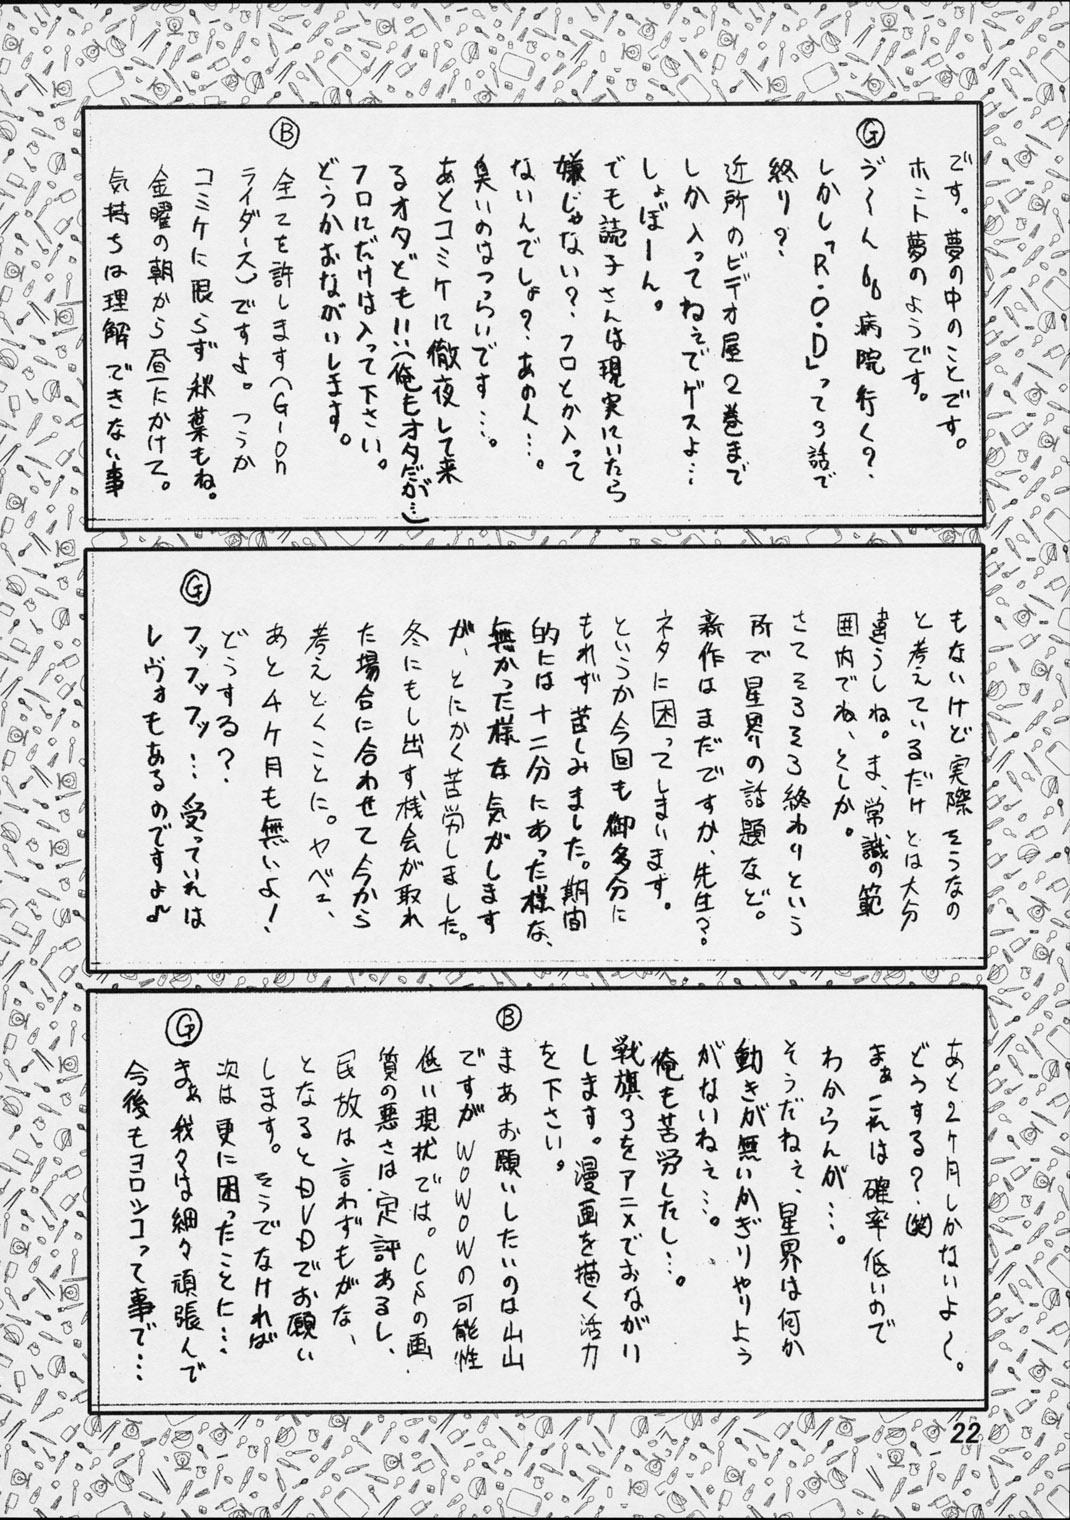 です。夢の中のことです。
ホント夢のようです。
Ⓖ う〜ん 病院行く?、
しかし「R.O.D」って3話で
終り?
近所のビデオ屋2巻まで
しか入ってねぇでゲスよ…
しょぼーん。
でも読子さんは現実にいたら
嫌じゃない?、フロとか入って
ないんでしょ?、あの人…。
臭いのはつらいです…。
あとコミケに徹夜して来
るオタども!!(俺もオタだが…)
フロにだけは入って下さい。
どうかおながいします。
Ⓑ 全てを許します(G-on
ライダース)ですよ。つうか
コミケに限らず秋葉もね。
金曜の朝から昼にかけて。
気持ちは理解できない事
もないけど実際そうなの
と考えているだけとは大分
違うしね。ま、常識の範
囲内でね、としか。
さてそろそろ終わりという
所で星界の話題など。
新作はまだですか、先生?。
ネタに困ってしまいます。
というか今回も御多分に
もれず苦しみました。期間
的には十二分にあった様な、
無かった様な気がします
が、とにかく苦労しました。
冬にもし出す機会が取れ
た場合に合わせて今から
考えとくことに。ヤベェ、
あと4ヶ月も無いよ!
どうする?.
Ⓖ フッフッフッ…受っていれは
レヴォもあるのですよ♪
あと2ヶ月しかないよ〜。
どうする?、(笑)
まぁこれは確率低いので
わからんが…。
そうだねぇ、星界は何か
動きが無いかぎりやりよう
がないねぇ…。
俺も苦労したし…。
戦旗3をアニメでおながい
します。漫画を描く活力
を下さい。
Ⓑ まあお願いしたいのは山山
ですがWOWOWの可能性
低い現状では。CSの画
質の悪さは定評あるし、
民放は言わずもがな、
となるとDVDでお願い
します。そうでなければ
次は更に困ったことに…
Ⓖ まぁ我々は細々頑張んで
今後もヨロシコって事で…
22